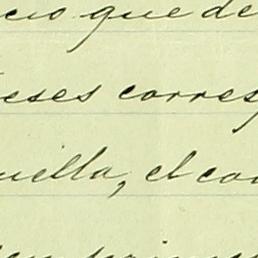 cio que de
eses corres
uella, el con